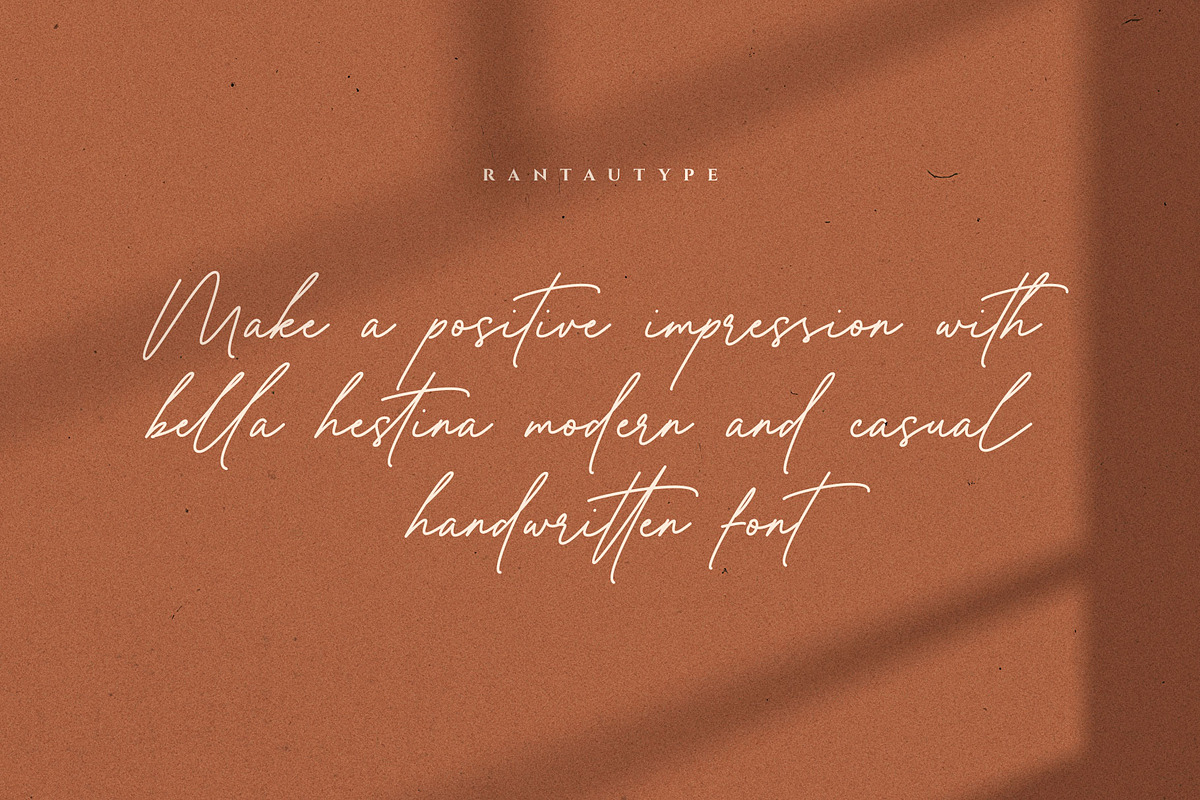 RANTAUTYPE
Make a positive impression with
bella hestina modern and casual
handwritten font